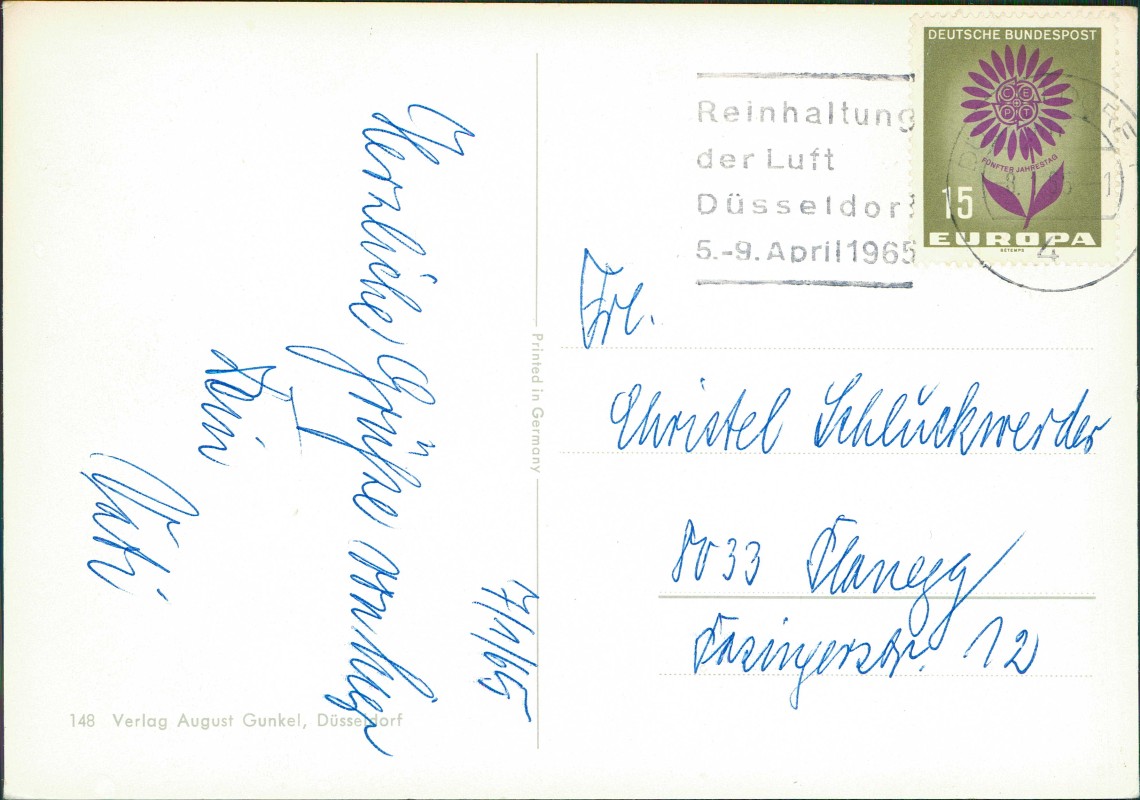 7/1/65
Herzliche Grüße von der
Dein
Vati
148 Verlag August Gunkel, Düsseldorf
Printed in Germany
Reinhaltung
der Luft
Düsseldorf
5.-9. April 1965
DEUTSCHE BUNDESPOST
CEPT
FÜNFTER JAHRESTAG
15
EUROPA
4
Frl.
Christel Schluckwerder
8033 Planegg
Pasingerstr. 12